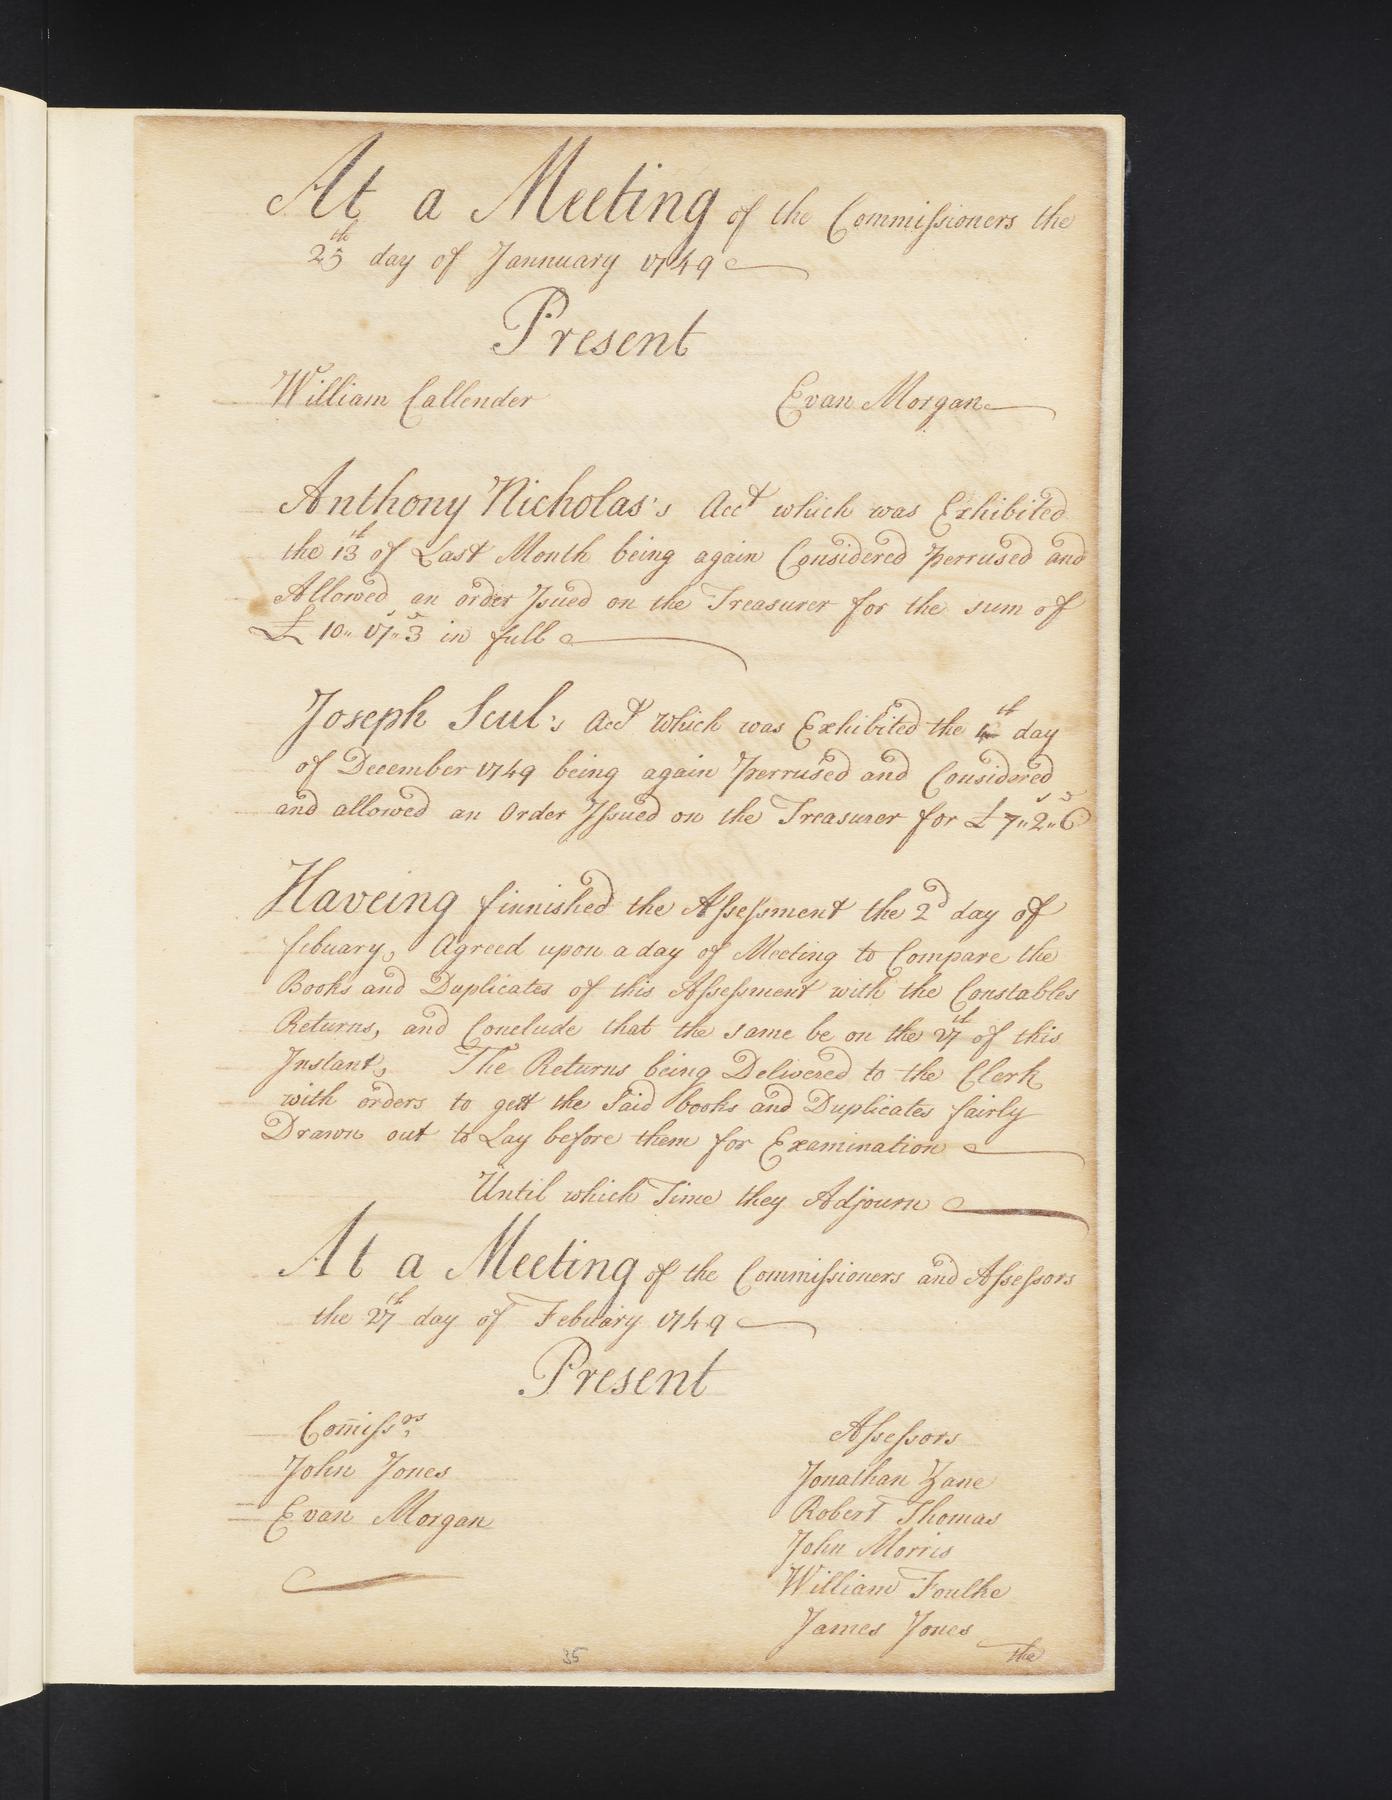 At a Meeting of the Commissioners the
25th day of Jannuary 1749
Present
William Callender Evan Morgan
Anthony Nicholas's Acct which was Exhibited
the 13th of Last Month being again Considered Perrused and
Allowed an order Isued on the Treasurer for the sum of
£ 10"17"3 in full
Joseph Scul's Acct which was Exhibited the 4th day
of December 1749 being again Perrused and Considered
and allowed an Order Issued on the Treasurer for £ 7"2"6
Haveing finnished the Assessment the 2d day of
febuary, Agreed upon a day of Meeting to Compare the
Books and Duplicates of this Assessment with the Constables
Returns, and Conclude that the same be on the 27th of this
Instant, The Returns being Delivered to the Clerk
with orders to gett the Said books and Duplicates fairly
Drawn out to Lay before them for Examination
Until which Time they Adjourn
At a Meeting of the Commissioners and Assessors
the 27th day of Febuary 1749
Present
Comissrs Assessors
John Jones Jonathan Zane
Evan Morgan Robert Thomas
John Morris
William Foulke
James Jones
the
35